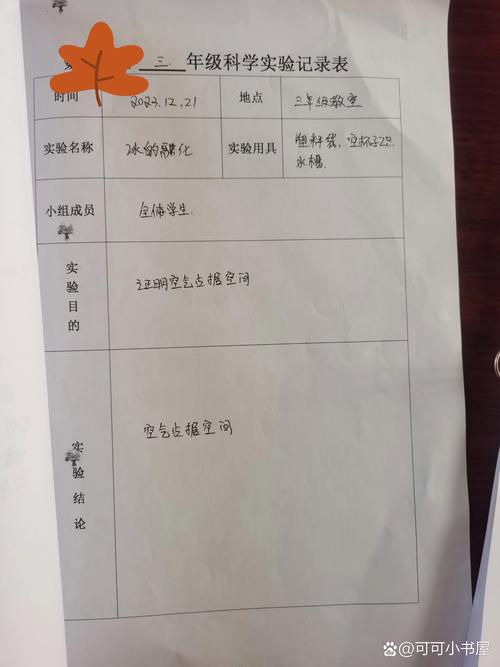 三 年级科学实验记录表
时间 2023.12.21 地点 三年级教室
实验名称 冰的融化 实验用具 塑料袋，空杯子2只
水槽.
小组成员 全体学生.
实验目的 证明空气占据空间
实验结论 空气占据空间
百家号/可可小书屋